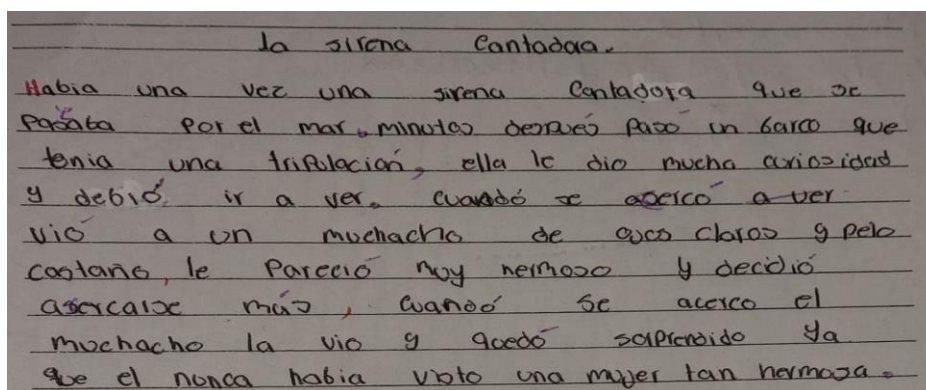 la sirena Cantadora.
Habia una vez una sirena Cantadora que se
pasaba por el mar. minutos después pasó un barco que
tenia una tripulación, ella le dio mucha curiosidad
y debió ir a ver. cuandó se apercó a ver
vió a un muchacho de ojos claros y pelo
castaño, le Pareció muy hermoso y decidió
asercarse más, cuandó se acerco el
muchacho la vio y quedó solprendido ya
que el nonca habia visto una mujer tan hermosa.